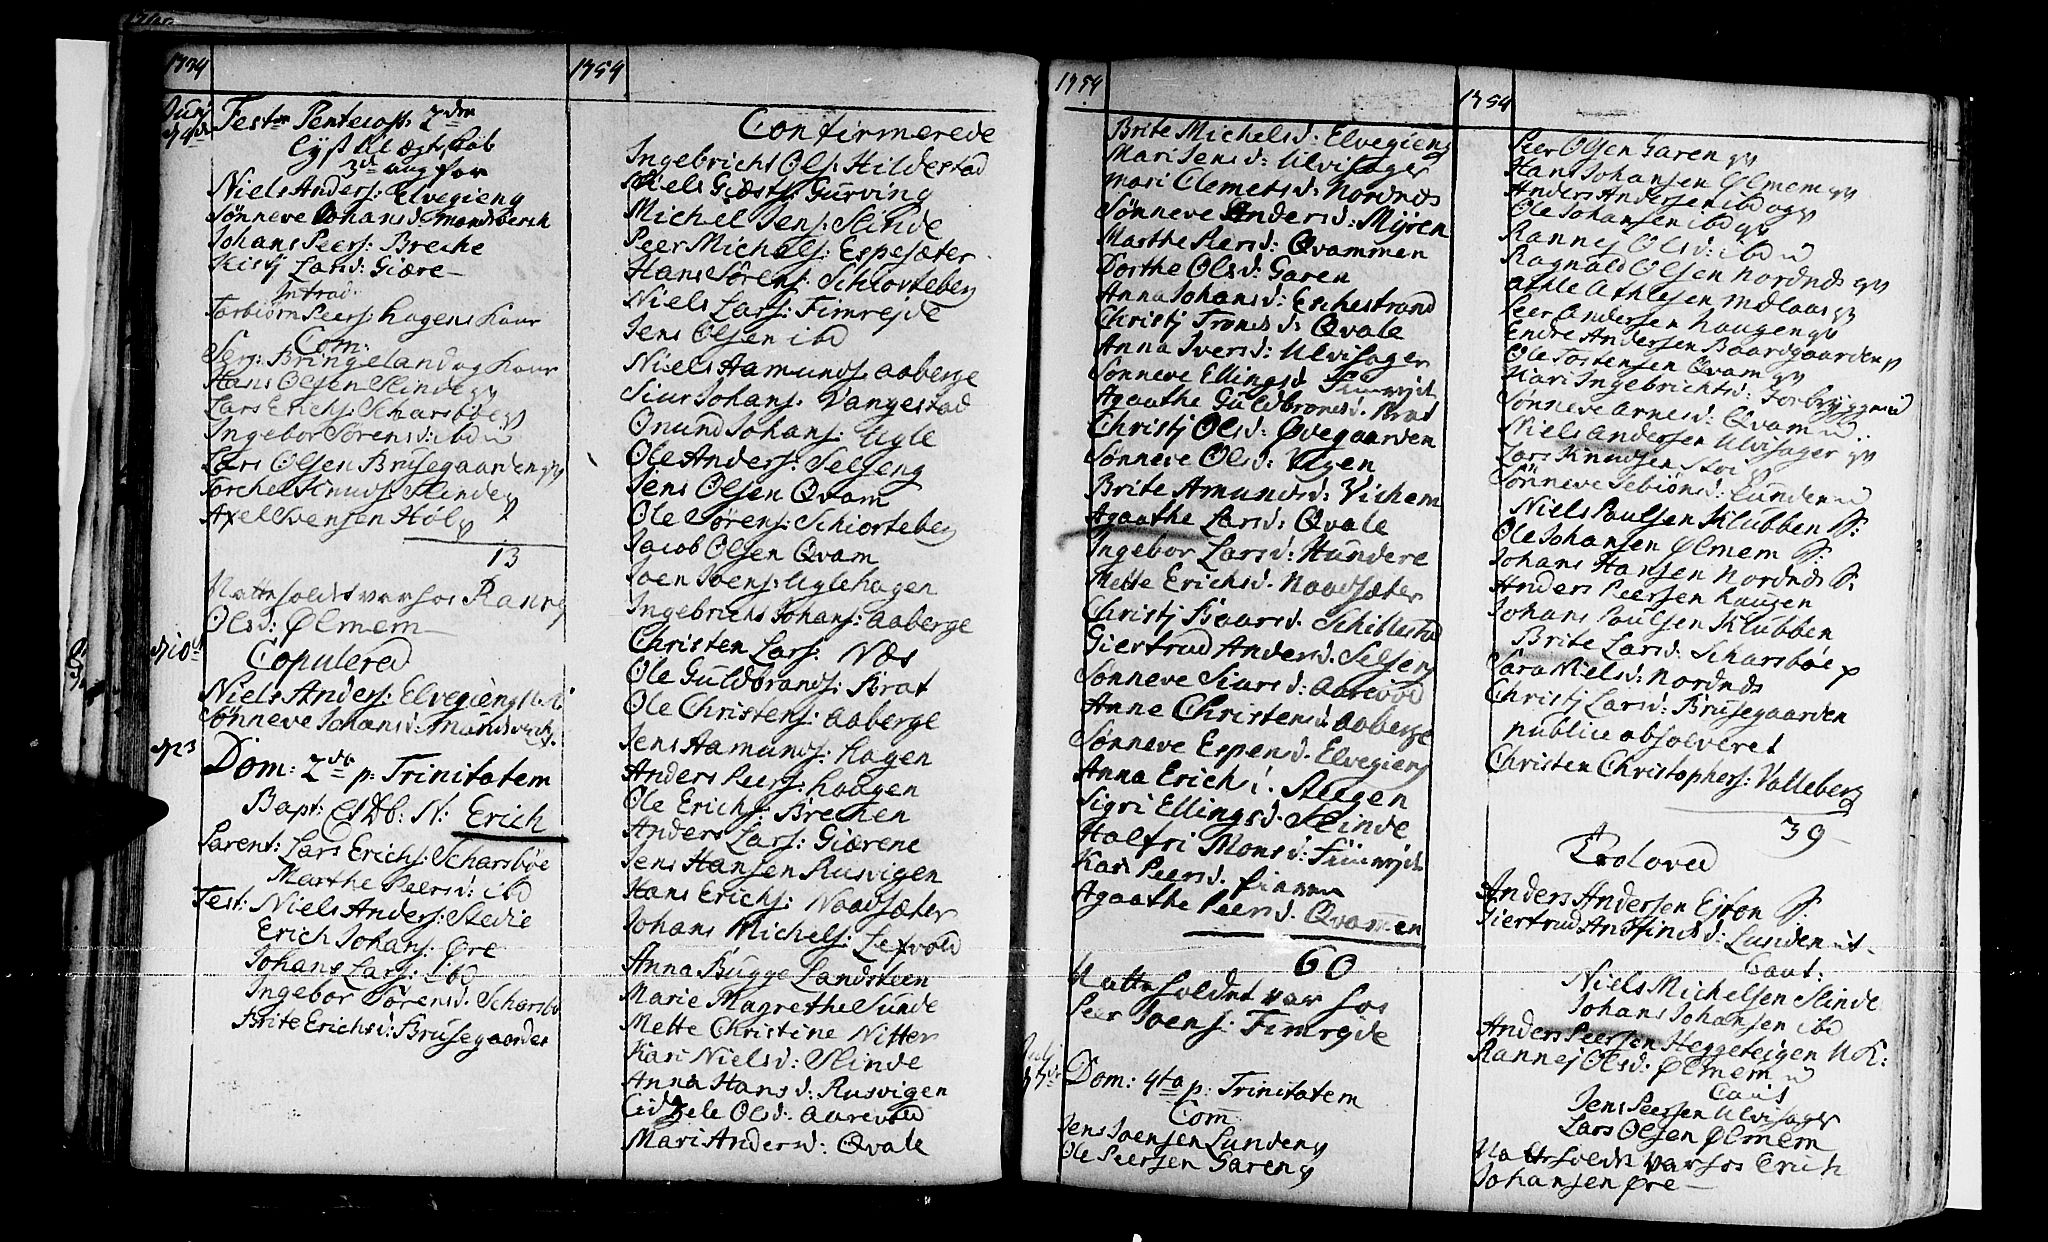 1754
Junj
d 4de
Fest. Pentecost: 2den
Lyst til ægteskab
3de ang for
Niels Anders: Elvegieng
Sønneve Johansd: Mundsberch
Johans Peers: Breche
Kistj Larsd: Giære
Introd.
Torbiørn Peers: Hagens Kone
Com:
Serg: Bringeland og Kone
Hans Olsen Slinde qv
Lars Erichs: Scharsbøe qv
Ingebor Sørensd: ibd u
Lars Olsen Brusegaarden qv
Torchel Knuds: Slinde qv
Axel Svensen Hol qv
13
Natte holdet var hos Rannej
Olsd: Ølmem
d 10de
Copulered
Niels Anders: Elvegieng
Sønneve Johansd: Mundsberch
d 23
Dom: 2da p: Trinitatem
Bapt: N: Erich
Parent: Lars Erichs: Scharsbøe
Marthe Peersd: ibd
Test: Niels Anders: Stedie
Erich Johans: Øre
Johans Lars: ibd
Ingebor Sørensd. Scharsbø
Brite Erichsd: Brusegaarden
1754
Confirmerede
Ingebricht Ols: Hildestad
Niels Giæsts: Gurving
Michel Jens: Slinde
Peer Michels: Espesæter
Hans Sørens: Schiorteberg
Niels Lars: Fimrejde
Jens Olsen ibd
Niels Aamunds: Aaberge
Siur Johans: Vangestad
Onund Johans: Ugle
Ole Anders: Selseng
Jens Olsen Qvam
Ole Sørens: Schiorteberg
Jacob Olsen Qvam
Joen Joens: Uglehagen
Ingebricht Johans: Aaberge
Christen Lars: Næs
Ole Guldbrands: Brat
Ole Christens: Aaberge
Jens Aamunds: Hagen
Anders Peers: Haugen
Ole Erichs: Brechen
Anders Lars: Giærene
Jens Hansen Rusvigen
Hans Erichs: Noadsæter
Johans Michels: Lefvold
Anna Bugge Landsteen
Marie Magrethe Sunde
Mette Christine Nitter
Kari Nielsd: Slinde
Anna Hansd: Rusvigen
Cidzele Olsd: Aarevold
Mari Andersd: Qvale
1754
Brite Michelsd: Elvegieng
Mari Jensd: Ulvisager
Mari Clemetsd: Nordnæs
Sønneve Andersd: Myren
Marthe Peersd: Qvammen
Dorthe Olsd: Garen
Anna Johansd: Eschestrand
Christj Tronsd: Qvale
Anna Iversd: Ulvisager
Sønneve Ellingsd. Fimrejde
Agaathe Guldbronsd. Brat
Christj Olsd: Øvegaarden
Sønneve Olsd: Vigen
Brite Amundsd: Vichem
Agaathe Larsd: Qvale
Ingebor Larsd: Hundere
Mette Erichsd. Noadsæter
Christj Baarsd. Schillestad
Giertrud Andersd. Selseng
Sønneve Siursd: Aarevold
Anne Christensd: Aaberge
Sønneve Espensd. Elvegieng
Anna Erichsd. Steegen
Sigri Ellingsd. Slinde
Halfri Monsd: Fimrejde
Kari Peersd.
Agaathe Peersd. Qvamen
60
Natte holdet var hos
Peer Joens: Fimrejde
Julj
d 7de
Dom: 4ta p: Trinitatem
Com
Jens Joensen Lunden qv
Ole Peersen Garen qv
1754
Peer Olsen Garen qv
Hans Johansen Ølmem qv
Anders Andersen ibd og qv
Ole Johansen ibd qv
Rannej Olsd: ibd u
Ragnald Olsen Nordnæs qv
Athle Athlesen Midlaas qv
Peer Andersen Haugen qv
Endre Andersen Baardgaarden qv
Ole Tostensen Qvam qv
Kari Ingebrichtsd: Torbryggen u
Sønneve Arnesd: Qvam u
Niels Andersen Ulvisager qv
Lars Knudsen Stoe qv
Sønneve Sebiønsd: Lunden u
Niels Paulsen Klubben S:
Ole Johansen Ølmem S:
Johans Hansen Nordnæs S:
Anders Peersen Haugen
Johans Paulsen Klubben
Brite Larsd: Scharsbøe p
Sara Nielsd: Nordnæs
Christj Larsd: Brusegaarden
publice absolveret
Christen Christophers: Valleberg
39
Troloved
Anders Andersen Ejron S:
Giertrud Andfindsd: Lunden ut
Caut:
Niels Michelsen Slinde
Johans Johansen ibd
Anders Peersen Heggeteigen U K:
Rannej Olsd: Ølmem u
Caut
Jens Peersen Ulvisager
Lars Olsen Ølmem
Natte holdet var hos Erich
Johansen Øre